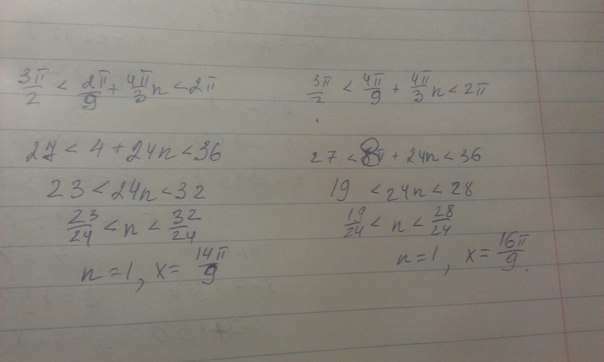 3π/2 < 2π/9 + 4π/3 n < 2π
27 < 4 + 24n < 36
23 < 24n < 32
23/24 < n < 32/24
n = 1, x = 14π/9
3π/2 < 4π/9 + 4π/3 n < 2π
27 < 8 + 24n < 36
19 < 24n < 28
19/24 < n < 28/24
n = 1, x = 16π/9.